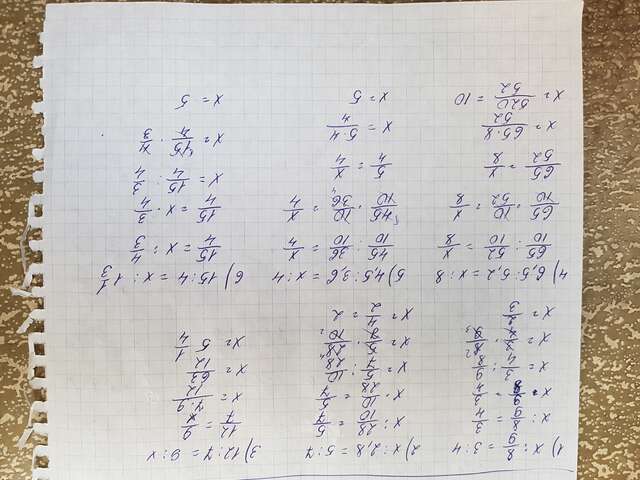 1) x : 8/9 = 3 : 4
x : 8/9 = 3/4
x · 9/8 = 3/4
x = 3/4 : 9/8
x = 3/4 · 8/9
x = 2/3
2) x : 2,8 = 5 : 7
x : 28/10 = 5/7
x · 10/28 = 5/7
x = 5/7 : 10/28
x = 5/7 · 28/10
x = 4/2 = 2
3) 12 : 7 = 9 : x
12/7 = 9/x
x = 7·9/12
x = 63/12
x = 5 1/4
4) 6,5 : 5,2 = x : 8
65/10 : 52/10 = x/8
65/10 · 10/52 = x/8
65/52 = x/8
x = 65·8/52
x = 520/52 = 10
5) 4,5 : 3,6 = x : 4
45/10 : 36/10 = x/4
45/10 · 10/36 = x/4
5/4 = x/4
x = 5·4/4
x = 5
6) 15 : 4 = x : 1 1/3
15/4 = x : 4/3
15/4 = x · 3/4
x = 15/4 : 3/4
x = 15/4 · 4/3
x = 5